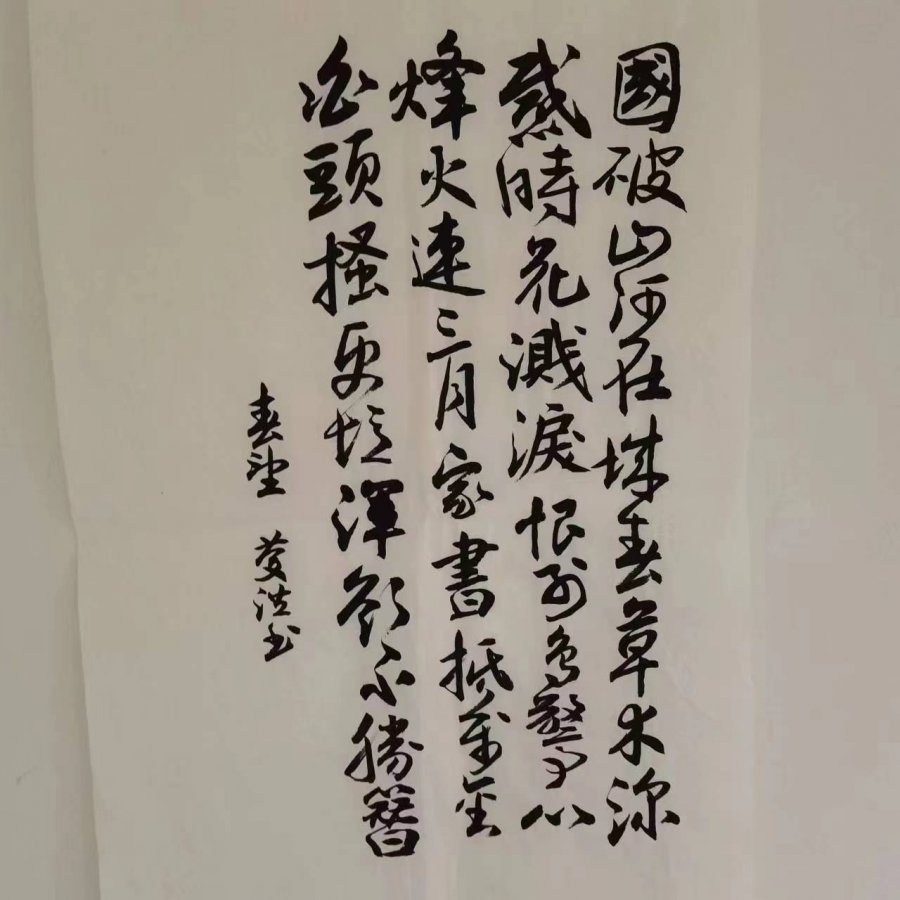 國破山河在城春草木深
感時花濺淚恨別鳥驚心
烽火連三月家書抵萬金
白頭搔更短渾欲不勝簪
春望 洪書